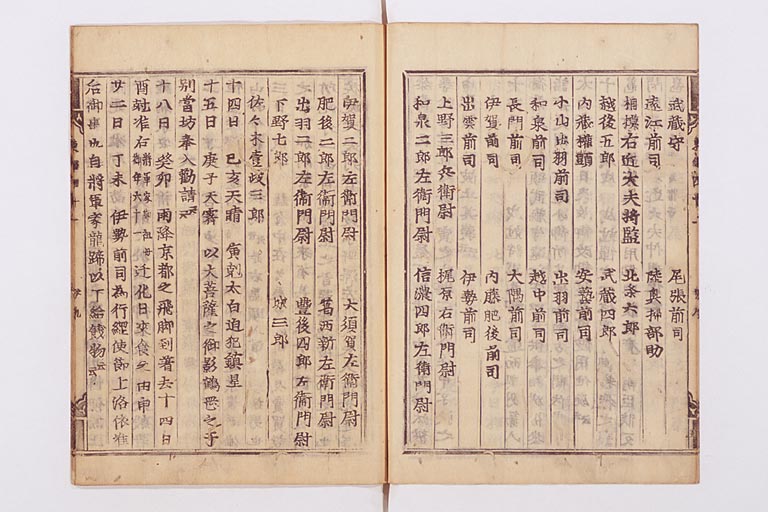 武蔵守 尾張前司
遠江前司 陸奥掃部助
相摸右近大夫将監 北条六郎
越後五郎 武蔵四郎
内蔵権頭 安藝前司
小山出羽前司 出羽前司
和泉前司 越中前司
長門前司 大隅前司
伊賀前司 内藤肥後前司
出雲前司 伊勢前司
上野三郎兵衛尉 梶原右衛門尉
和泉二郎左衛門尉 信濃四郎左衛門尉
伊賀二郎左衛門尉 大須賀左衛門尉
肥後二郎左衛門尉 葛西新左衛門尉
出羽二郎左衛門尉 豊後四郎左衛門尉
下野七郎 三郎
佐々木壹岐三郎
十四日 己亥天晴 寅剋太白追犯鎮星
十五日 庚子天霽 以大菩薩之御影鶴岡之
別當坊奉入勸請云云
十八日 癸卯 雨降京都之飛脚到著去十四日
酉尅准后 近化日来食之由申
廿二日 丁未 伊勢前司為行經使節上洛依准
后御事也自將軍家龍蹄以下給餞物云云